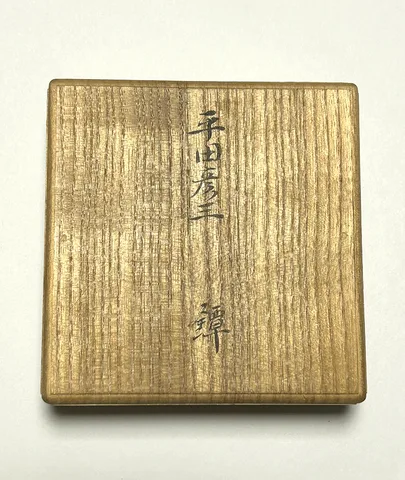 平田彦三 鐔